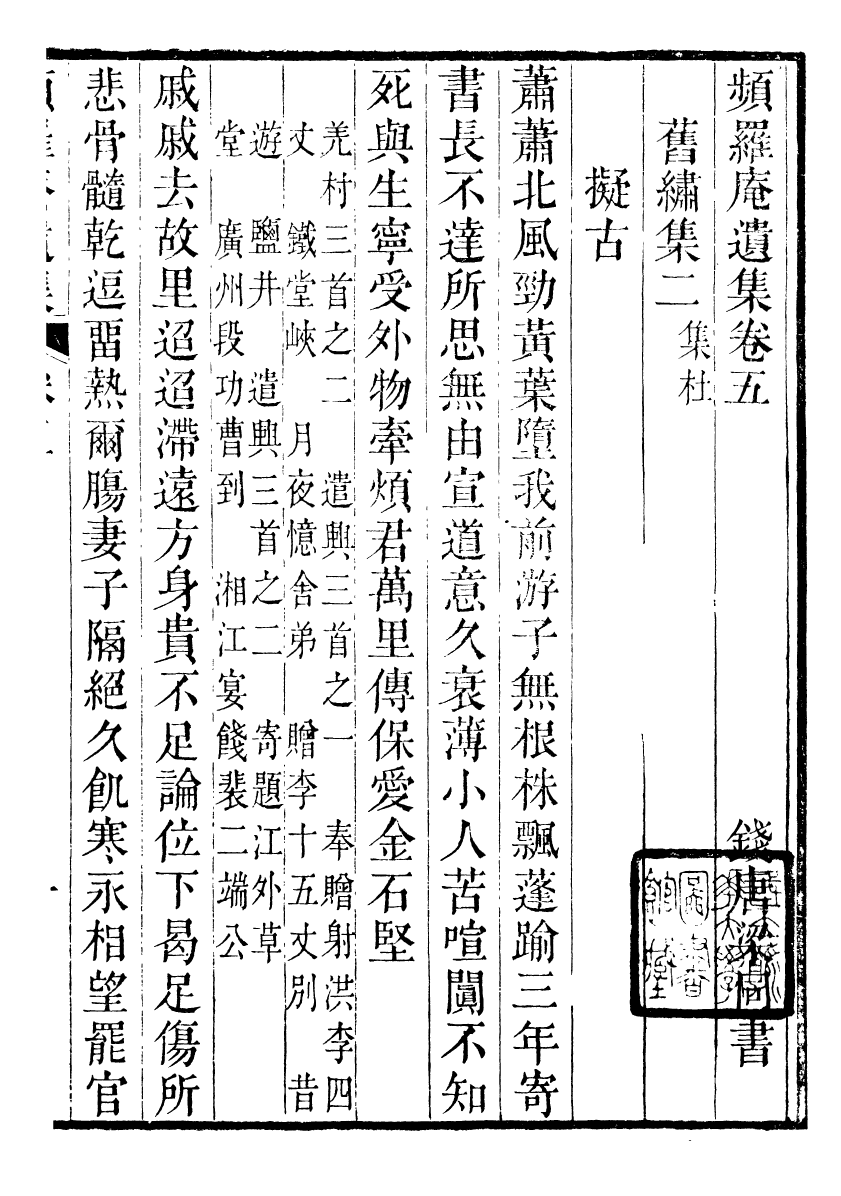 頻羅庵遺集卷五　錢唐梁同書
舊繡集二　集杜
擬古
蕭蕭北風勁黃葉墮我前游子無根株飄蓬踰三年寄
書長不達所思無由宣道意久衰薄小人苦喧闐不知
死與生寧受外物牽煩君萬里傳保愛金石堅
羌村三首之二　遣興三首之一　奉贈射洪李四
丈　鐵堂峽　月夜憶舍弟　贈李十五丈別　昔
遊　鹽井　遣興三首之二　寄題江外草
堂　廣州段功曹到　湘江宴餞裴二端公
戚戚去故里迢迢滯遠方身貴不足論位下曷足傷所
悲骨髓乾逗畱熱爾腸妻子隔絕久飢寒永相望罷官